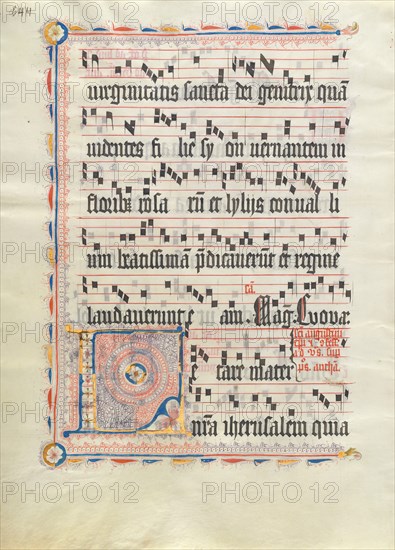 uirginitatis sancta dei genitrix quā
uidentes fi lie sy on uernantem in
floribꝰ rosa rū et lylijs conual li
um beatissimā p̄dicauerūt et regine
laudauerunt e am. Mag̃. Euouae
L e tare mater
n̄ra iherusalem quia